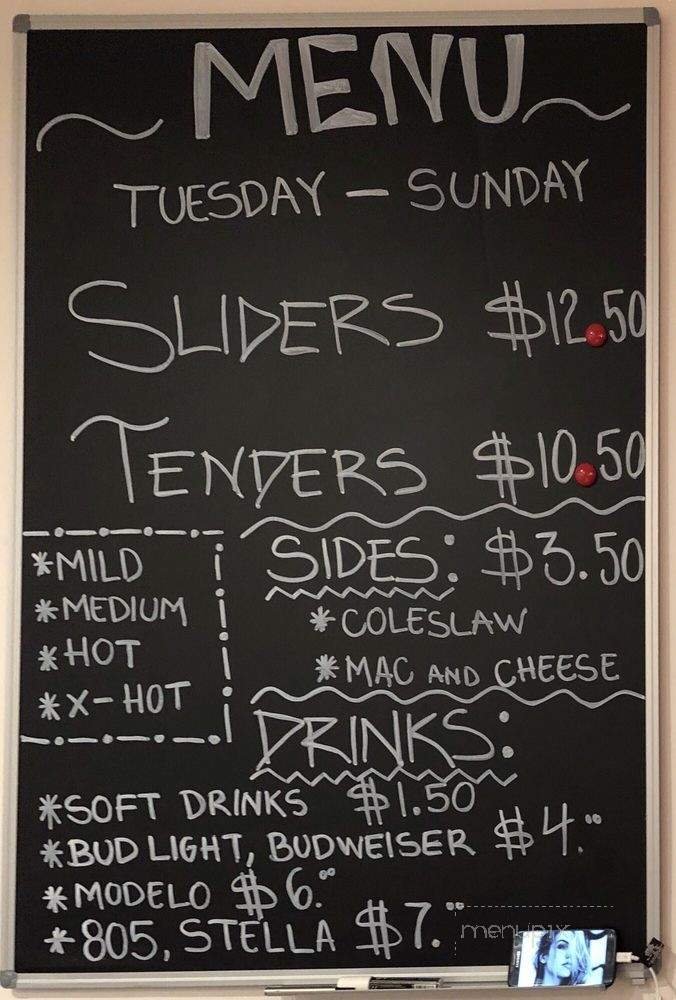 MENU
TUESDAY - SUNDAY
SLIDERS $12.50
TENDERS $10.50
*MILD
*MEDIUM
*HOT
*X-HOT
SIDES: $3.50
*COLESLAW
*MAC AND CHEESE
DRINKS:
*SOFT DRINKS $1.50
*BUD LIGHT, BUDWEISER $4.00
*MODELO $6.00
*805, STELLA $7.00
menupix